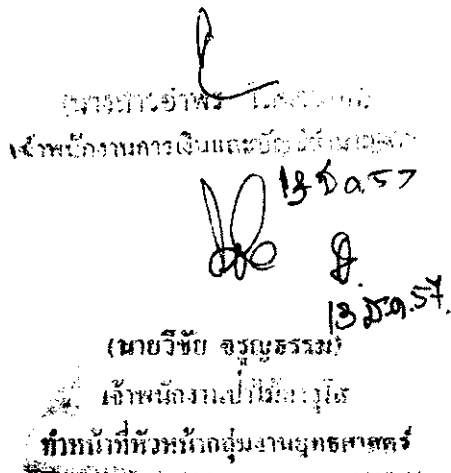 (นางสาวอำพร
เจ้าพนักงานการเงินและบัญชีชำนาญงาน
13 มี.ค. 57
13 มี.ค. 57.
(นายวิชัย จรูญธรรม)
เจ้าพนักงานป่าไม้อาวุโส
ทำหน้าที่หัวหน้ากลุ่มงานยุทธศาสตร์